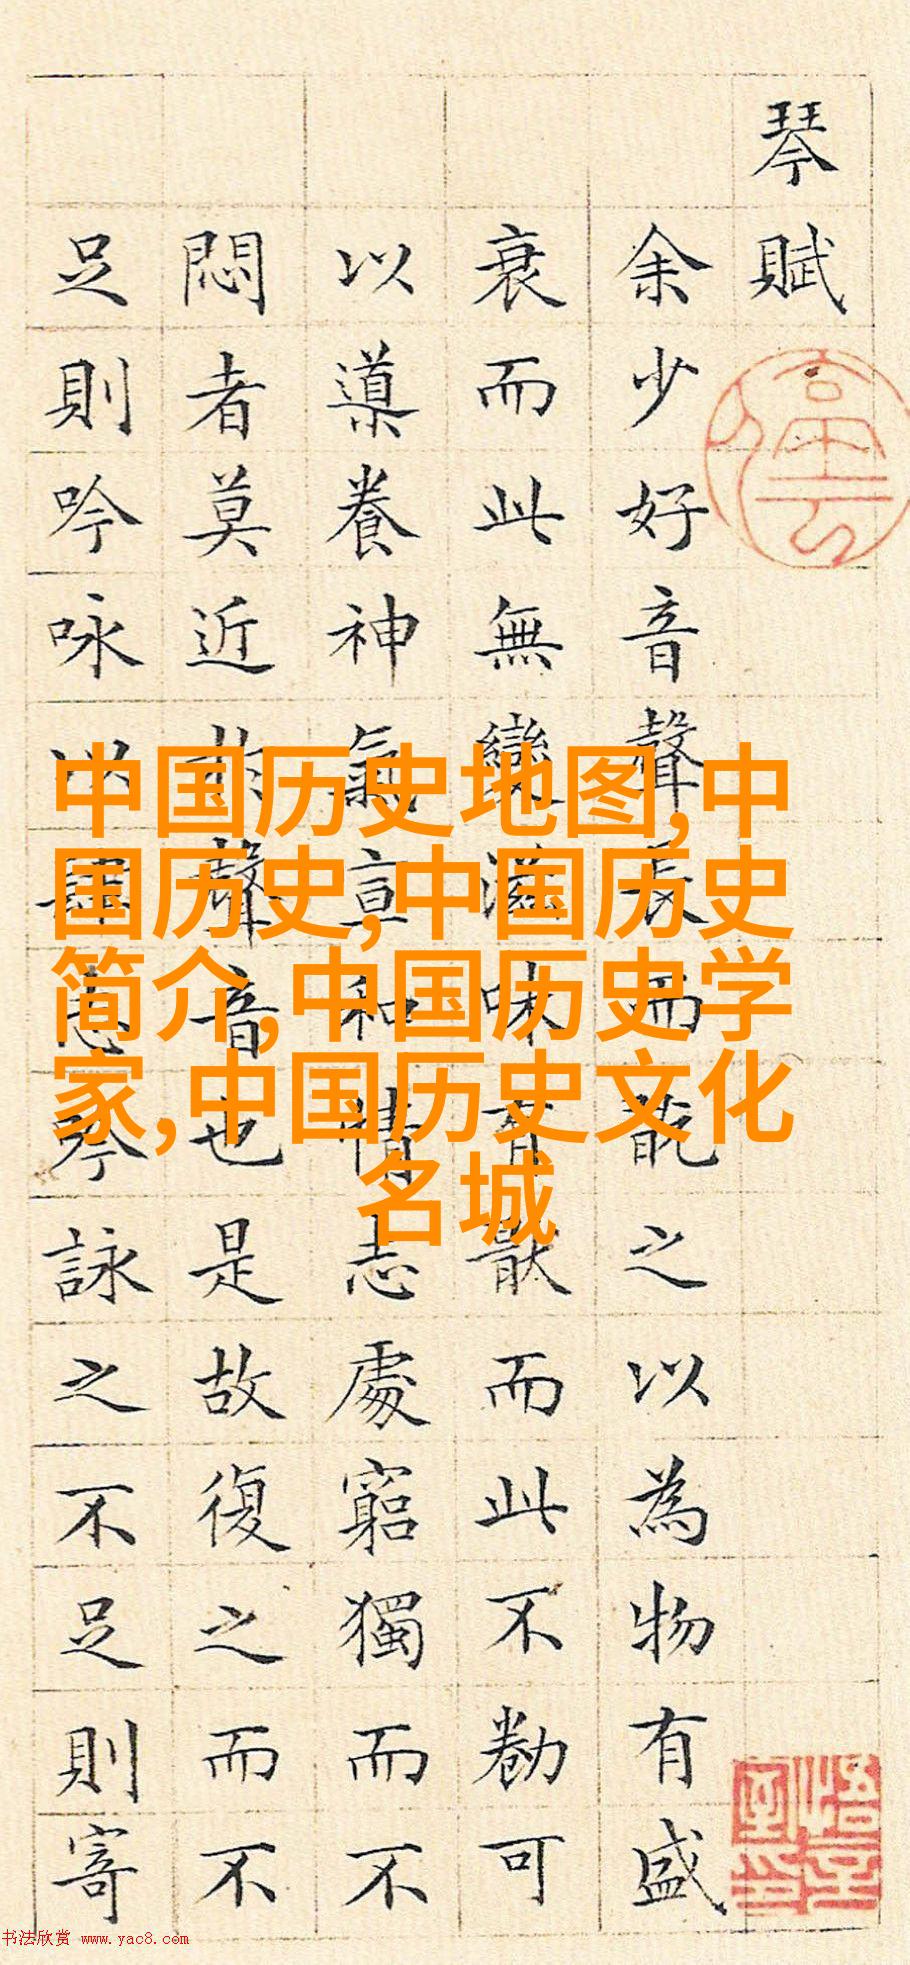 琴賦
余少好音聲長而翫之以為物有盛
衰而此無變滋味有猒而此不勌可
以導養神氣宣和情志處窮獨而不
悶者莫近於聲音也是故復之而不
足則吟咏以肆志吟詠之不足則寄
中国历史地图,中
国历史,中国历史
简介,中国历史学
家,中国历史文化
名城
书法欣赏 www.yac8.com